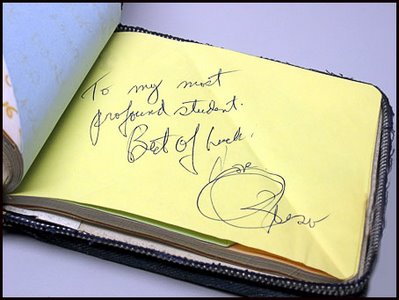 To my most
profound student.
Best of luck.